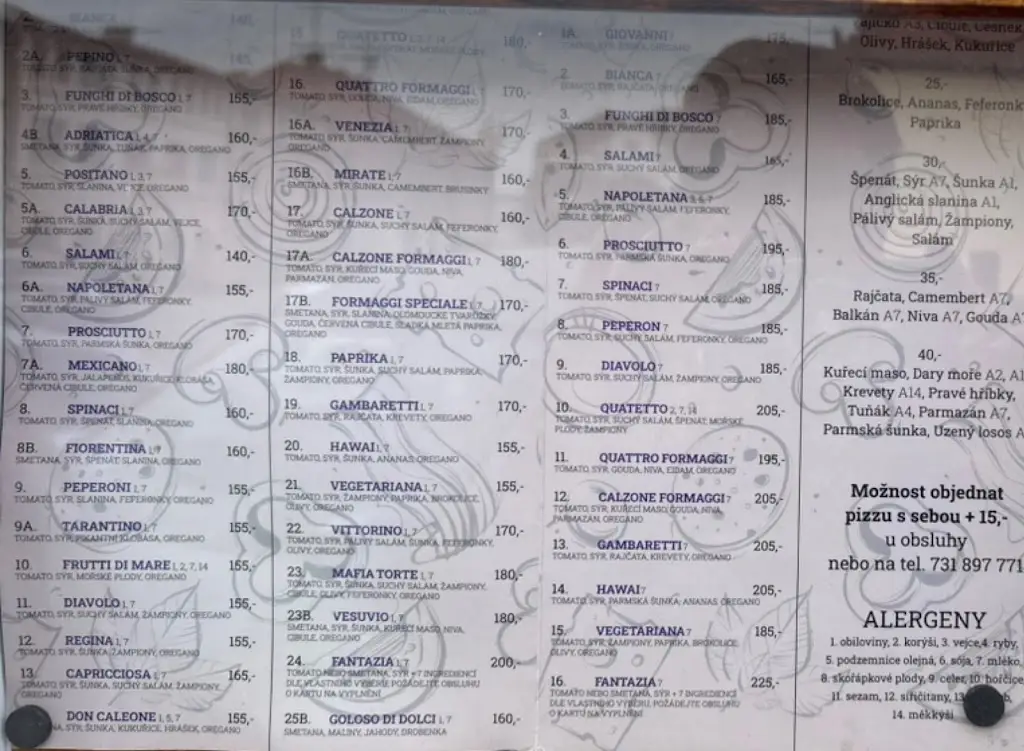 BIANCA
2A. PEPINO 1, 7
TOMATO, SÝR, ŠUNKA, OREGANO
3. FUNGHI DI BOSCO 1, 7 155,-
TOMATO, SÝR, PRAVÉ HŘIBKY, OREGANO
4B. ADRIATICA 1, 4, 7 160,-
SMETANA, SÝR, ŠUNKA, TUŇÁK, PAPRIKA, OREGANO
5. POSITANO 1, 3, 7 155,-
TOMATO, SÝR, SLANINA, VEJCE, OREGANO
5A. CALABRIA 1, 3, 7 170,-
TOMATO, SÝR, ŠUNKA, SUCHÝ SALÁM, VEJCE,
CIBULE, OREGANO
6. SALAMI 7 140,-
TOMATO, SÝR, SUCHÝ SALÁM, OREGANO
6A. NAPOLETANA 1, 7 155,-
TOMATO, SÝR, PÁLIVÝ SALÁM, FEFERONKY,
CIBULE, OREGANO
7. PROSCIUTTO 1, 7 170,-
TOMATO, SÝR, PARMSKÁ ŠUNKA, OREGANO
7A. MEXICANO 1, 7 180,-
TOMATO, SÝR, JALAPEŇOS, KUKUŘICE, KLOBÁSA,
ČERVENÁ CIBULE, OREGANO
8. SPINACI 1, 7 160,-
TOMATO, SÝR, ŠPENÁT, SLANINA, OREGANO
8B. FIORENTINA 1, 7 160,-
SMETANA, SÝR, ŠPENÁT, SLANINA, OREGANO
9. PEPERONI 1, 7 155,-
TOMATO, SÝR, SLANINA, FEFERONKY, OREGANO
9A. TARANTINO 1, 7 155,-
TOMATO, SÝR, PIKANTNÍ KLOBÁSA, OREGANO
10. FRUTTI DI MARE 1, 2, 7, 14 155,-
TOMATO, SÝR, MOŘSKÉ PLODY, OREGANO
11. DIAVOLO 1, 7 155,-
TOMATO, SÝR, SUCHÝ SALÁM, ŽAMPIONY, OREGANO
12. REGINA 1, 7 155,-
TOMATO, SÝR, ŠUNKA, ŽAMPIONY, OREGANO
13. CAPRICCIOSA 1, 7 165,-
TOMATO, SÝR, ŠUNKA, SUCHÝ SALÁM, ŽAMPIONY,
OREGANO
DON CALEONE 1, 5, 7 155,-
SÝR, ŠUNKA, KUKUŘICE, HRÁŠEK, OREGANO
15 QUATETTO 1, 2, 7, 14 180,-
MOŘSKÉ PLODY
16. QUATTRO FORMAGGI 1, 7 170,-
TOMATO, SÝR, GOUDA, NIVA, EIDAM, OREGANO
16A. VENEZIA 1, 7 170,-
TOMATO, SÝR, ŠUNKA, CAMEMBERT, ŽAMPIONY,
OREGANO
16B. MIRATE 1, 7 160,-
SMETANA, SÝR, ŠUNKA, CAMEMBERT, BRUSINKY
17. CALZONE 1, 7 160,-
TOMATO, SÝR, ŠUNKA, SUCHÝ SALÁM, FEFERONKY,
OREGANO
17A. CALZONE FORMAGGI 1, 7 180,-
TOMATO, SÝR, KUŘECÍ MASO, GOUDA, NIVA,
PARMAZÁN, OREGANO
17B. FORMAGGI SPECIALE 1, 7 170,-
SMETANA, SÝR, SLANINA, OLOMOUCKÉ TVARŮŽKY,
GOUDA, ČERVENÁ CIBULE, SLADKÁ MLETÁ PAPRIKA,
OREGANO
18. PAPRIKA 1, 7 170,-
TOMATO, SÝR, ŠUNKA, SUCHÝ SALÁM, PAPRIKA,
ŽAMPIONY, OREGANO
19. GAMBARETTI 1, 7 170,-
TOMATO, SÝR, RAJČATA, KREVETY, OREGANO
20. HAWAI 1, 7 155,-
TOMATO, SÝR, ŠUNKA, ANANAS, OREGANO
21. VEGETARIANA 1, 7 155,-
TOMATO, SÝR, ŽAMPIONY, PAPRIKA, BROKOLICE,
OLIVY, OREGANO
22. VITTORINO 1, 7 170,-
TOMATO, SÝR, PÁLIVÝ SALÁM, ŠUNKA, FEFERONKY,
OLIVY, OREGANO
23. MAFIA TORTE 1, 7 180,-
TOMATO, SÝR, ŠUNKA, SUCHÝ SALÁM, ŽAMPIONY,
CIBULE, OLIVY, FEFERONKY, OREGANO
23B. VESUVIO 1, 7 180,-
SMETANA, SÝR, ŠUNKA, KUŘECÍ MASO, NIVA,
CIBULE, OREGANO
24. FANTAZIA 1, 7 200,-
TOMATO NEBO SMETANA, SÝR + 7 INGREDIENCÍ
DLE VLASTNÍHO VÝBĚRU, POŽÁDEJTE OBSLUHU
O KARTU NA VYPLNĚNÍ
25B. GOLOSO DI DOLCI 1, 7 160,-
SMETANA, MALINY, JAHODY, DROBENKA
1A. GIOVANNI 7 175,-
2. BIANCA 7 165,-
TOMATO, SÝR, RAJČATA, OREGANO
3. FUNGHI DI BOSCO 7 185,-
TOMATO, SÝR, PRAVÉ HŘIBKY, OREGANO
4. SALAMI 7 165,-
TOMATO, SÝR, SUCHÝ SALÁM, OREGANO
5. NAPOLETANA 185,-
TOMATO, SÝR, PÁLIVÝ SALÁM, FEFERONKY,
CIBULE, OREGANO
6. PROSCIUTTO 7 195,-
TOMATO, SÝR, PARMSKÁ ŠUNKA, OREGANO
7. SPINACI 7 185,-
TOMATO, SÝR, ŠPENÁT, SUCHÝ SALÁM, OREGANO
8. PEPERON 7 185,-
TOMATO, SÝR, SUCHÝ SALÁM, FEFERONKY, OREGANO
9. DIAVOLO 7 185,-
TOMATO, SÝR, SUCHÝ SALÁM, ŽAMPIONY, OREGANO
10. QUATETTO 2, 7, 14 205,-
TOMATO, SÝR, SUCHÝ SALÁM, ŠPENÁT, MOŘSKÉ
PLODY, ŽAMPIONY
11. QUATTRO FORMAGGI 7 195,-
TOMATO, SÝR, GOUDA, NIVA, EIDAM, OREGANO
12. CALZONE FORMAGGI 7 205,-
TOMATO, SÝR, KUŘECÍ MASO, GOUDA, NIVA,
PARMAZÁN, OREGANO
13. GAMBARETTI 7 205,-
TOMATO, SÝR, RAJČATA, KREVETY, OREGANO
14. HAWAI 7 205,-
TOMATO, SÝR, PARMSKÁ ŠUNKA, ANANAS, OREGANO
15. VEGETARIANA 7 185,-
TOMATO, SÝR, ŽAMPIONY, PAPRIKA, BROKOLICE,
OLIVY, OREGANO
16. FANTAZIA 7 225,-
TOMATO NEBO SMETANA, SÝR + 7 INGREDIENCÍ
DLE VLASTNÍHO VÝBĚRU, POŽÁDEJTE OBSLUHU
O KARTU NA VYPLNĚNÍ
Vajíčko A3, Cibule, Česnek
Olivy, Hrášek, Kukuřice
25,-
Brokolice, Ananas, Feferonk
Paprika
30,-
Špenát, Sýr A7, Šunka A1,
Anglická slanina A1,
Pálivý salám, Žampiony,
Salám
35,-
Rajčata, Camembert A7,
Balkán A7, Niva A7, Gouda A
40,-
Kuřecí maso, Dary moře A2, A1
Krevety A14, Pravé hříbky,
Tuňák A4, Parmazán A7,
Parmská šunka, Uzený losos A
Možnost objednat
pizzu s sebou + 15,-
u obsluhy
nebo na tel. 731 897 771
ALERGENY
1. obiloviny, 2. korýši, 3. vejce, 4. ryby,
5. podzemnice olejná, 6. sója, 7. mléko,
8. skořápkové plody, 9. celer, 10. hořčice
11. sezam, 12. siřičitany, 13
14. měkkýši